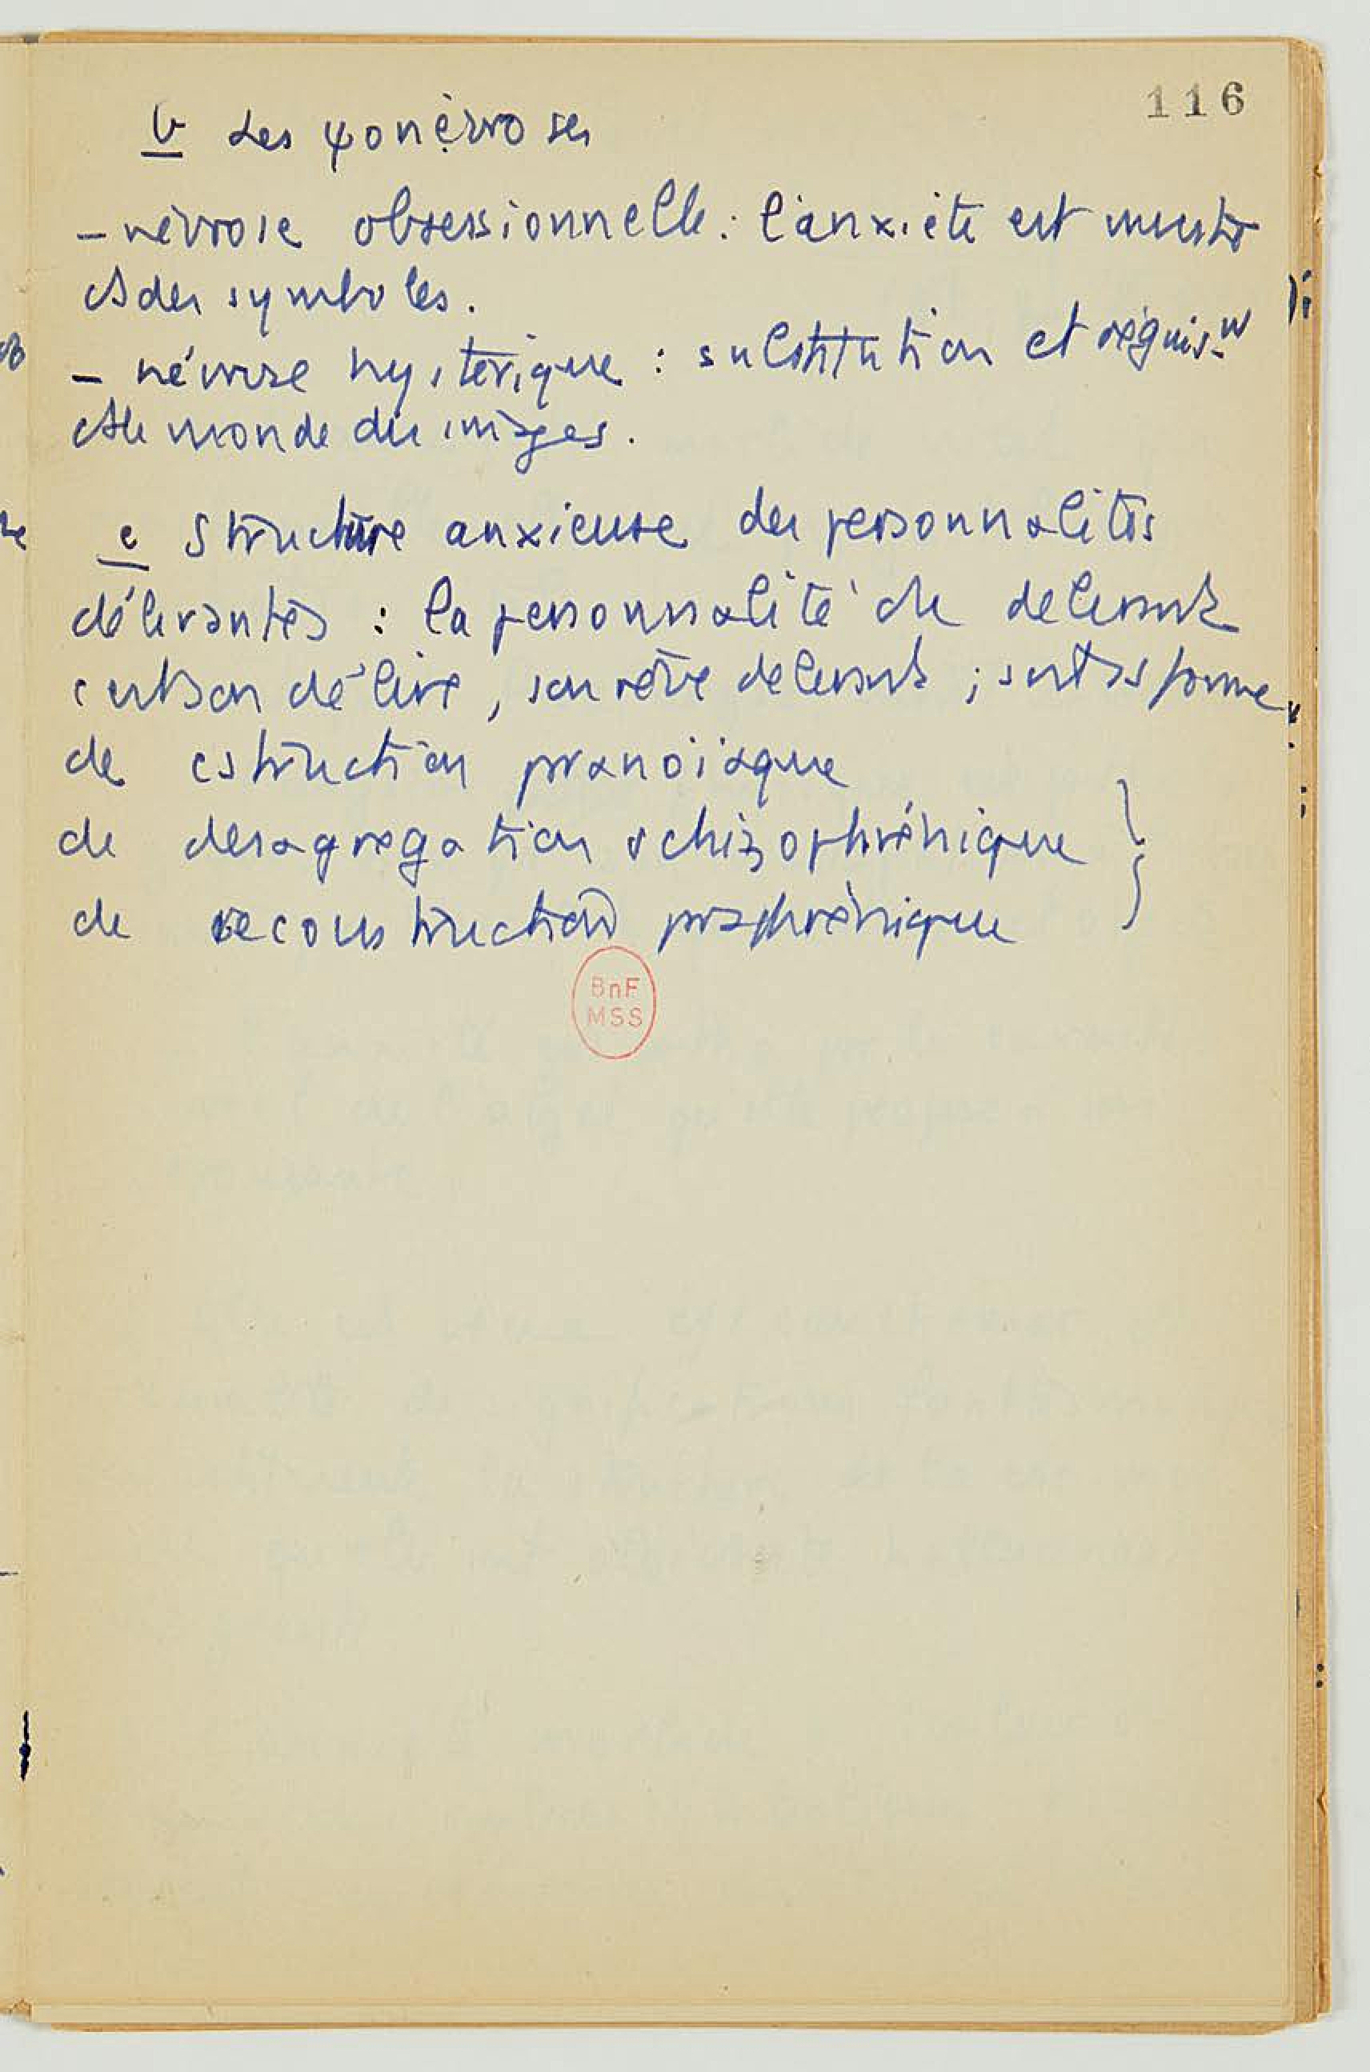 116
b Les ψonévroses
- névrose obsessionnelle : l'anxiété est
des symboles.
- névrose hystérique : substitution et
le monde des images.
c Structure anxieuse des personnalités
délirantes : la personnalité du délirant
c'est son délire, son rêve délirant ; forme
de cstruction pranoïaque
de desagregation schizophrénique
de reconstruction praphrénique
BnF
MSS